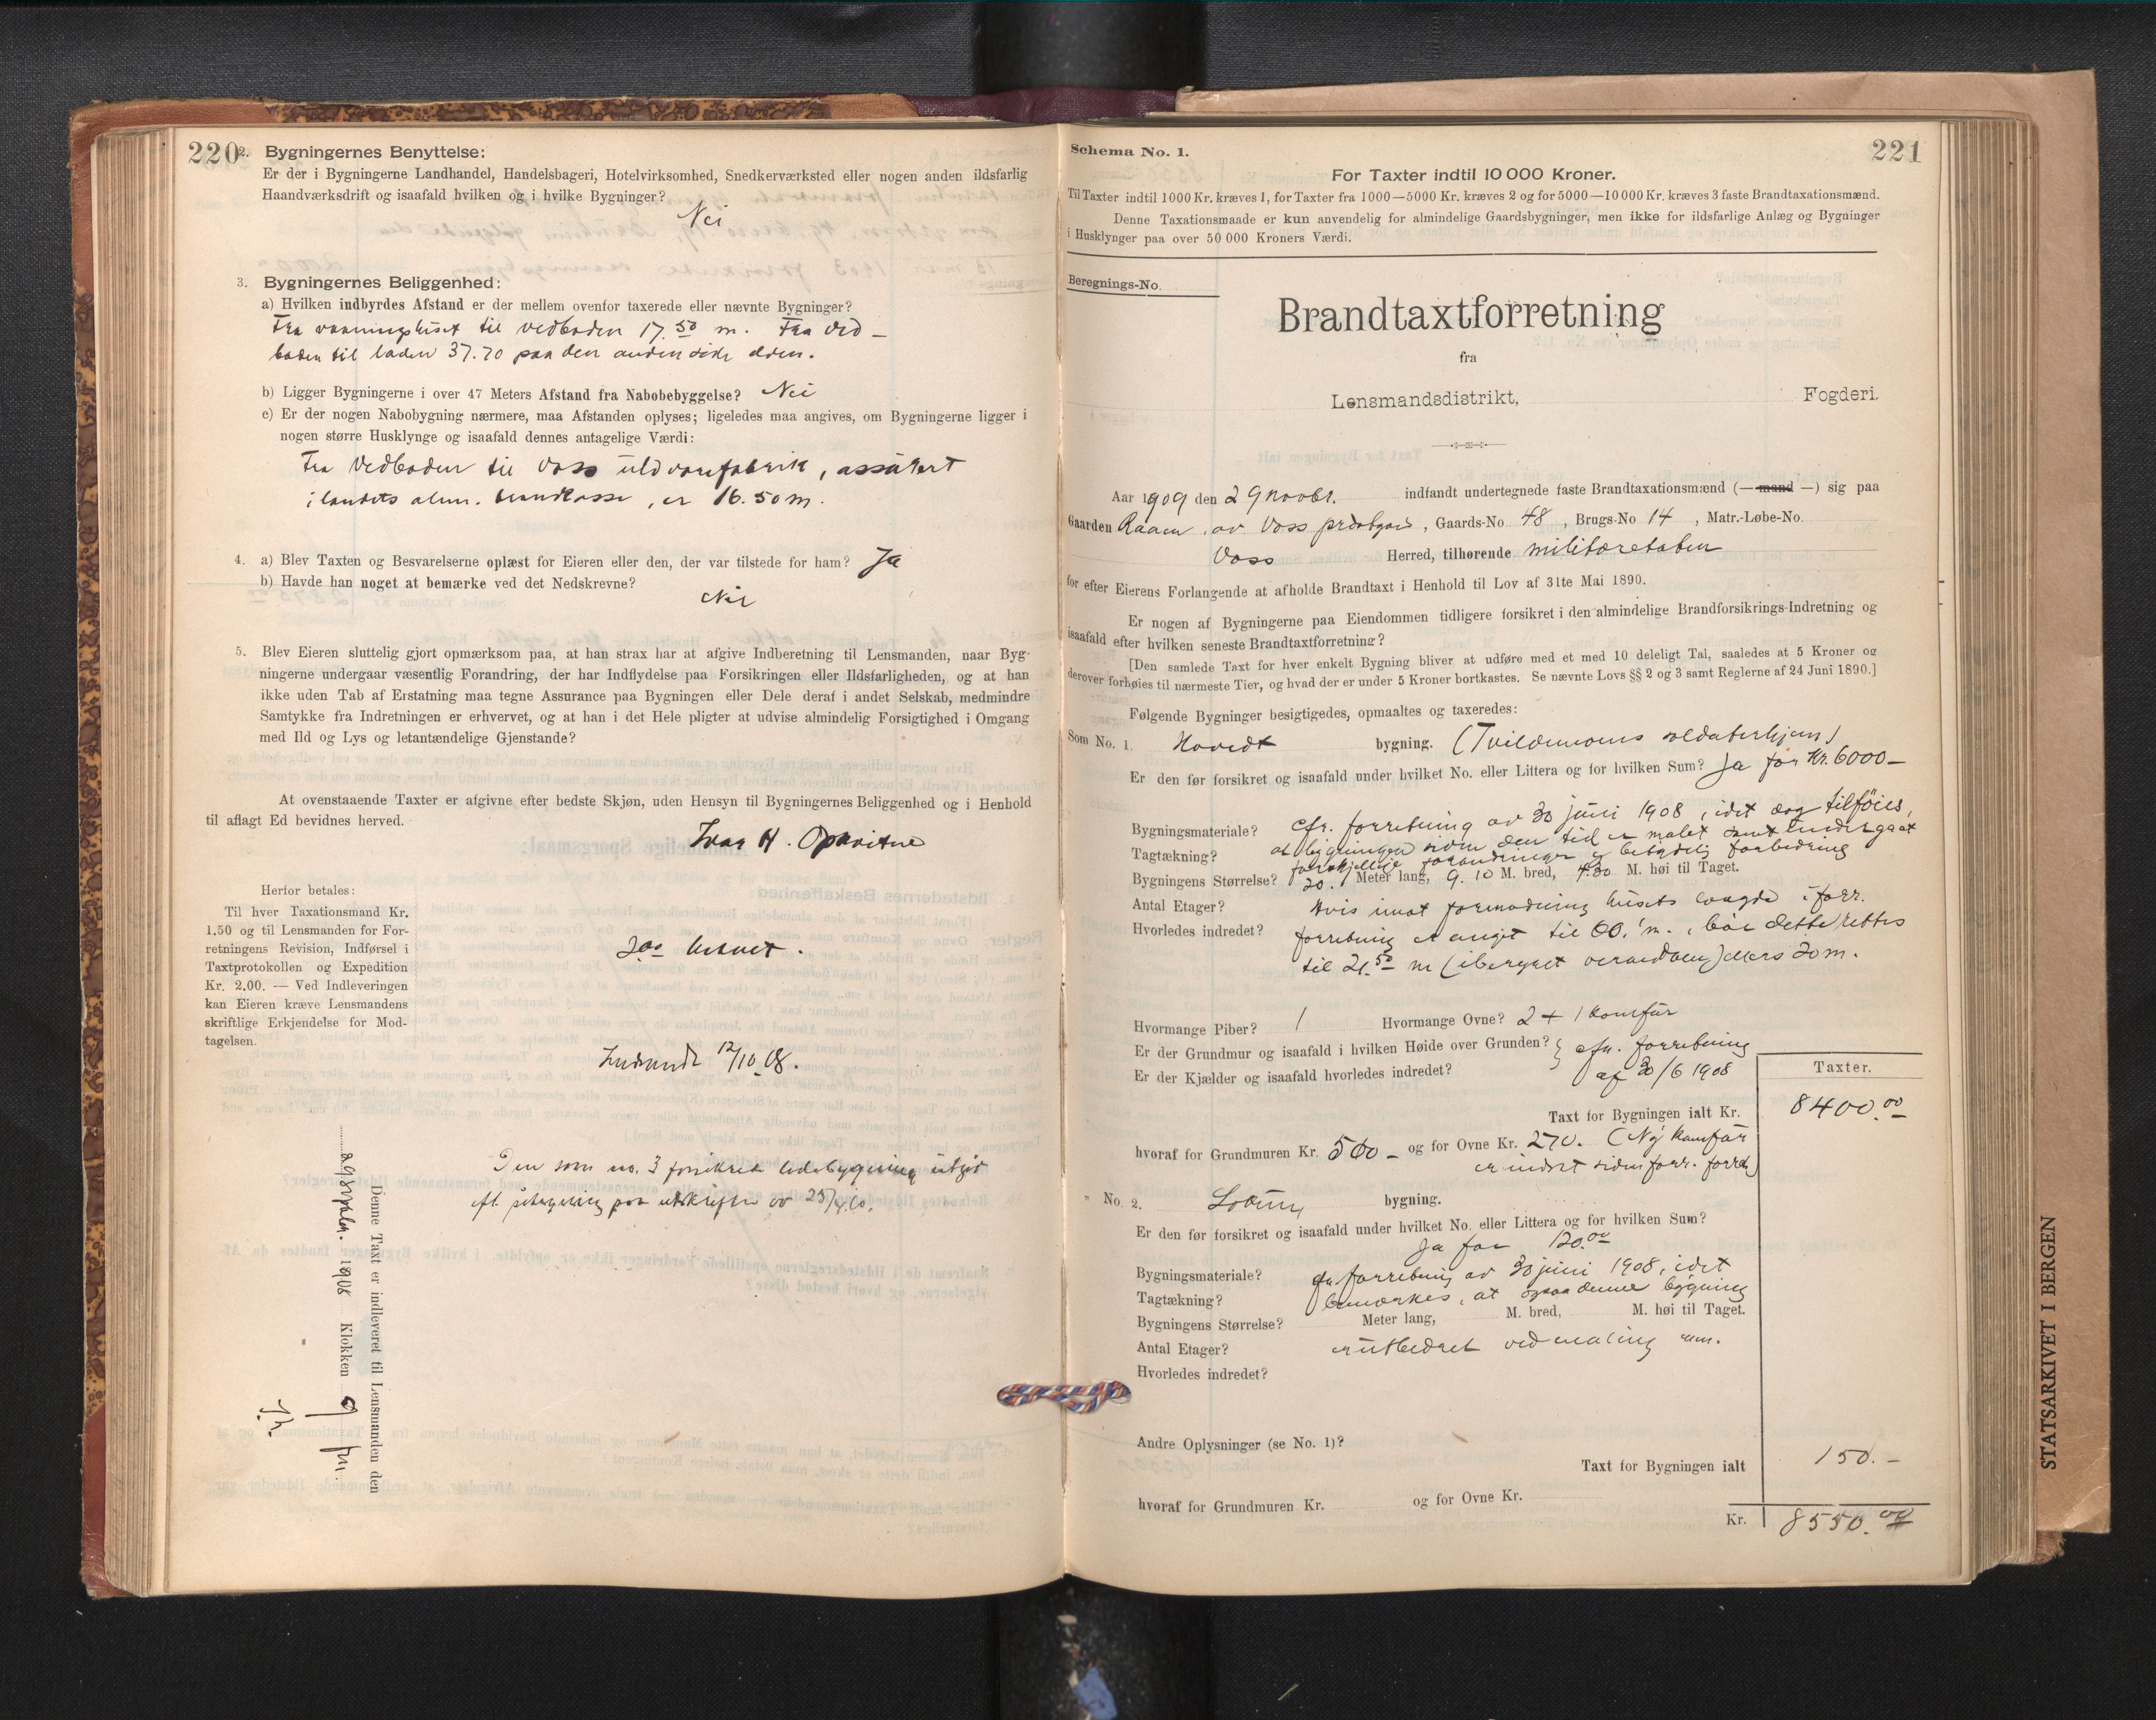 220
2. Bygningernes Benyttelse:
Er der i Bygningerne Landhandel, Handelsbageri, Hotelvirksomhed, Snedkerværksted eller nogen anden ildsfarlig
Haandværksdrift og isaafald hvilken og i hvilke Bygninger?
Nei
3. Bygningernes Beliggenhed:
a) Hvilken indbyrdes Afstand er der mellem ovenfor taxerede eller nævnte Bygninger?
Fra vaaningshuset til vedboden 17.50 m. Fra ved-
boden til laden 37.70 paa den anden side elven.
b) Ligger Bygningerne i over 47 Meters Afstand fra Nabobebyggelse? Nei
c) Er der nogen Nabobygning nærmere, maa Afstanden oplyses; ligeledes maa angives, om Bygningerne ligger i
nogen større Husklynge og isaafald dennes antagelige Værdi:
Fra Vedboden til Voss uldvarefabrik, assurert
i landets alm. brandkasse, er 16.50 m.
4. a) Blev Taxten og Besvarelserne oplæst for Eieren eller den, der var tilstede for ham? Ja
b) Havde han noget at bemærke ved det Nedskrevne?
Nei
5. Blev Eieren sluttelig gjort opmærksom paa, at han strax har at afgive Indberetning til Lensmanden, naar Byg-
ningerne undergaar væsentlig Forandring, der har Indflydelse paa Forsikringen eller Ildsfarligheden, og at han
ikke uden Tab af Erstatning maa tegne Assurance paa Bygningen eller Dele deraf i andet Selskab, medmindre
Samtykke fra Indretningen er erhvervet, og at han i det Hele pligter at udvise almindelig Forsigtighed i Omgang
med Ild og Lys og letantændelige Gjenstande?
At ovenstaaende Taxter er afgivne efter bedste Skjøn, uden Hensyn til Bygningernes Beliggenhed og i Henhold
til aflagt Ed bevidnes herved.
Ivar H. Opkvitne
Herfor betales:
Til hver Taxationsmand Kr.
1.50 og til Lensmanden for For-
retningens Revision, Indførsel i
Taxtprotokollen og Expedition
Kr. 2.00. — Ved Indleveringen
kan Eieren kræve Lensmandens
skriftlige Erkjendelse for Mod-
tagelsen.
Indsendt 12/10 08.
Den som no. 3 forsikret
Denne Taxt er indleveret til Lensmanden den
1908 Klokken 9
Schema No. 1.
221
For Taxter indtil 10 000 Kroner.
Til Taxter indtil 1000 Kr. kræves 1, for Taxter fra 1000—5000 Kr. kræves 2 og for 5000—10 000 Kr. kræves 3 faste Brandtaxationsmænd.
Denne Taxationsmaade er kun anvendelig for almindelige Gaardsbygninger, men ikke for ildsfarlige Anlæg og Bygninger
i Husklynger paa over 50 000 Kroners Værdi.
Beregnings-No.
Brandtaxtforretning
fra
Lensmandsdistrikt, Fogderi.
Aar 1909 den 29 novbr. indfandt undertegnede faste Brandtaxationsmænd (— mand —) sig paa
Gaarden Raaen, av Voss prestgd, Gaards-No 48, Brugs-No 14, Matr.-Løbe-No.
Voss Herred, tilhørende militæretaten
for efter Eierens Forlangende at afholde Brandtaxt i Henhold til Lov af 31te Mai 1890.
Er nogen af Bygningerne paa Eiendommen tidligere forsikret i den almindelige Brandforsikrings-Indretning og
isaafald efter hvilken seneste Brandtaxtforretning?
[Den samlede Taxt for hver enkelt Bygning bliver at udføre med et med 10 deleligt Tal, saaledes at 5 Kroner og
derover forhøies til nærmeste Tier, og hvad der er under 5 Kroner bortkastes. Se nævnte Lovs §§ 2 og 3 samt Reglerne af 24 Juni 1890.]
Følgende Bygninger besigtigedes, opmaaltes og taxeredes:
Som No. 1. Hovedt bygning. (Tvildemoens soldaterhjem)
Er den før forsikret og isaafald under hvilket No. eller Littera og for hvilken Sum? Ja for Kr. 6000—
Bygningsmateriale? cfr. forretning av 30 juni 1908, idet dog tilføies,
Tagtækning? at bygningen siden den tid er malet samt undergaat
forskjellige forandringer og betydelig forbedring
Bygningens Størrelse? 20. Meter lang, 9.10 M. bred, 4.30 M. høi til Taget.
Antal Etager? Hvis imot formodning husets længde i forr.
Hvorledes indredet? forretning er angit til 00.1 m., bør dette rettes
til 21.50 m (iberegnet verandaen) ellers 20 m.
Hvormange Piber? 1 Hvormange Ovne? 2 + 1 komfur
Er der Grundmur og isaafald i hvilken Høide over Grunden? } cfr. forretning
Er der Kjælder og isaafald hvorledes indredet? af 30/6 1908
Taxter.
Taxt for Bygningen ialt Kr. 8400.00
hvoraf for Grundmuren Kr. 500— og for Ovne Kr. 270. (Ny komfur
er indsat siden forr. forretn)
" No. 2. bygning.
Er den før forsikret og isaafald under hvilket No. eller Littera og for hvilken Sum?
Ja for 120.00
Bygningsmateriale? cfr forretning av 30 juni 1908, idet
Tagtækning? bemerkes, at ogsaa denne bygning
Bygningens Størrelse? Meter lang, M. bred, M. høi til Taget.
Antal Etager? er utbedret ved maling mm.
Hvorledes indredet?
Andre Oplysninger (se No. 1)?
Taxt for Bygningen ialt 150.—
hvoraf for Grundmuren Kr. og for Ovne Kr.
Kr. 8550.00
STATSARKIVET I BERGEN